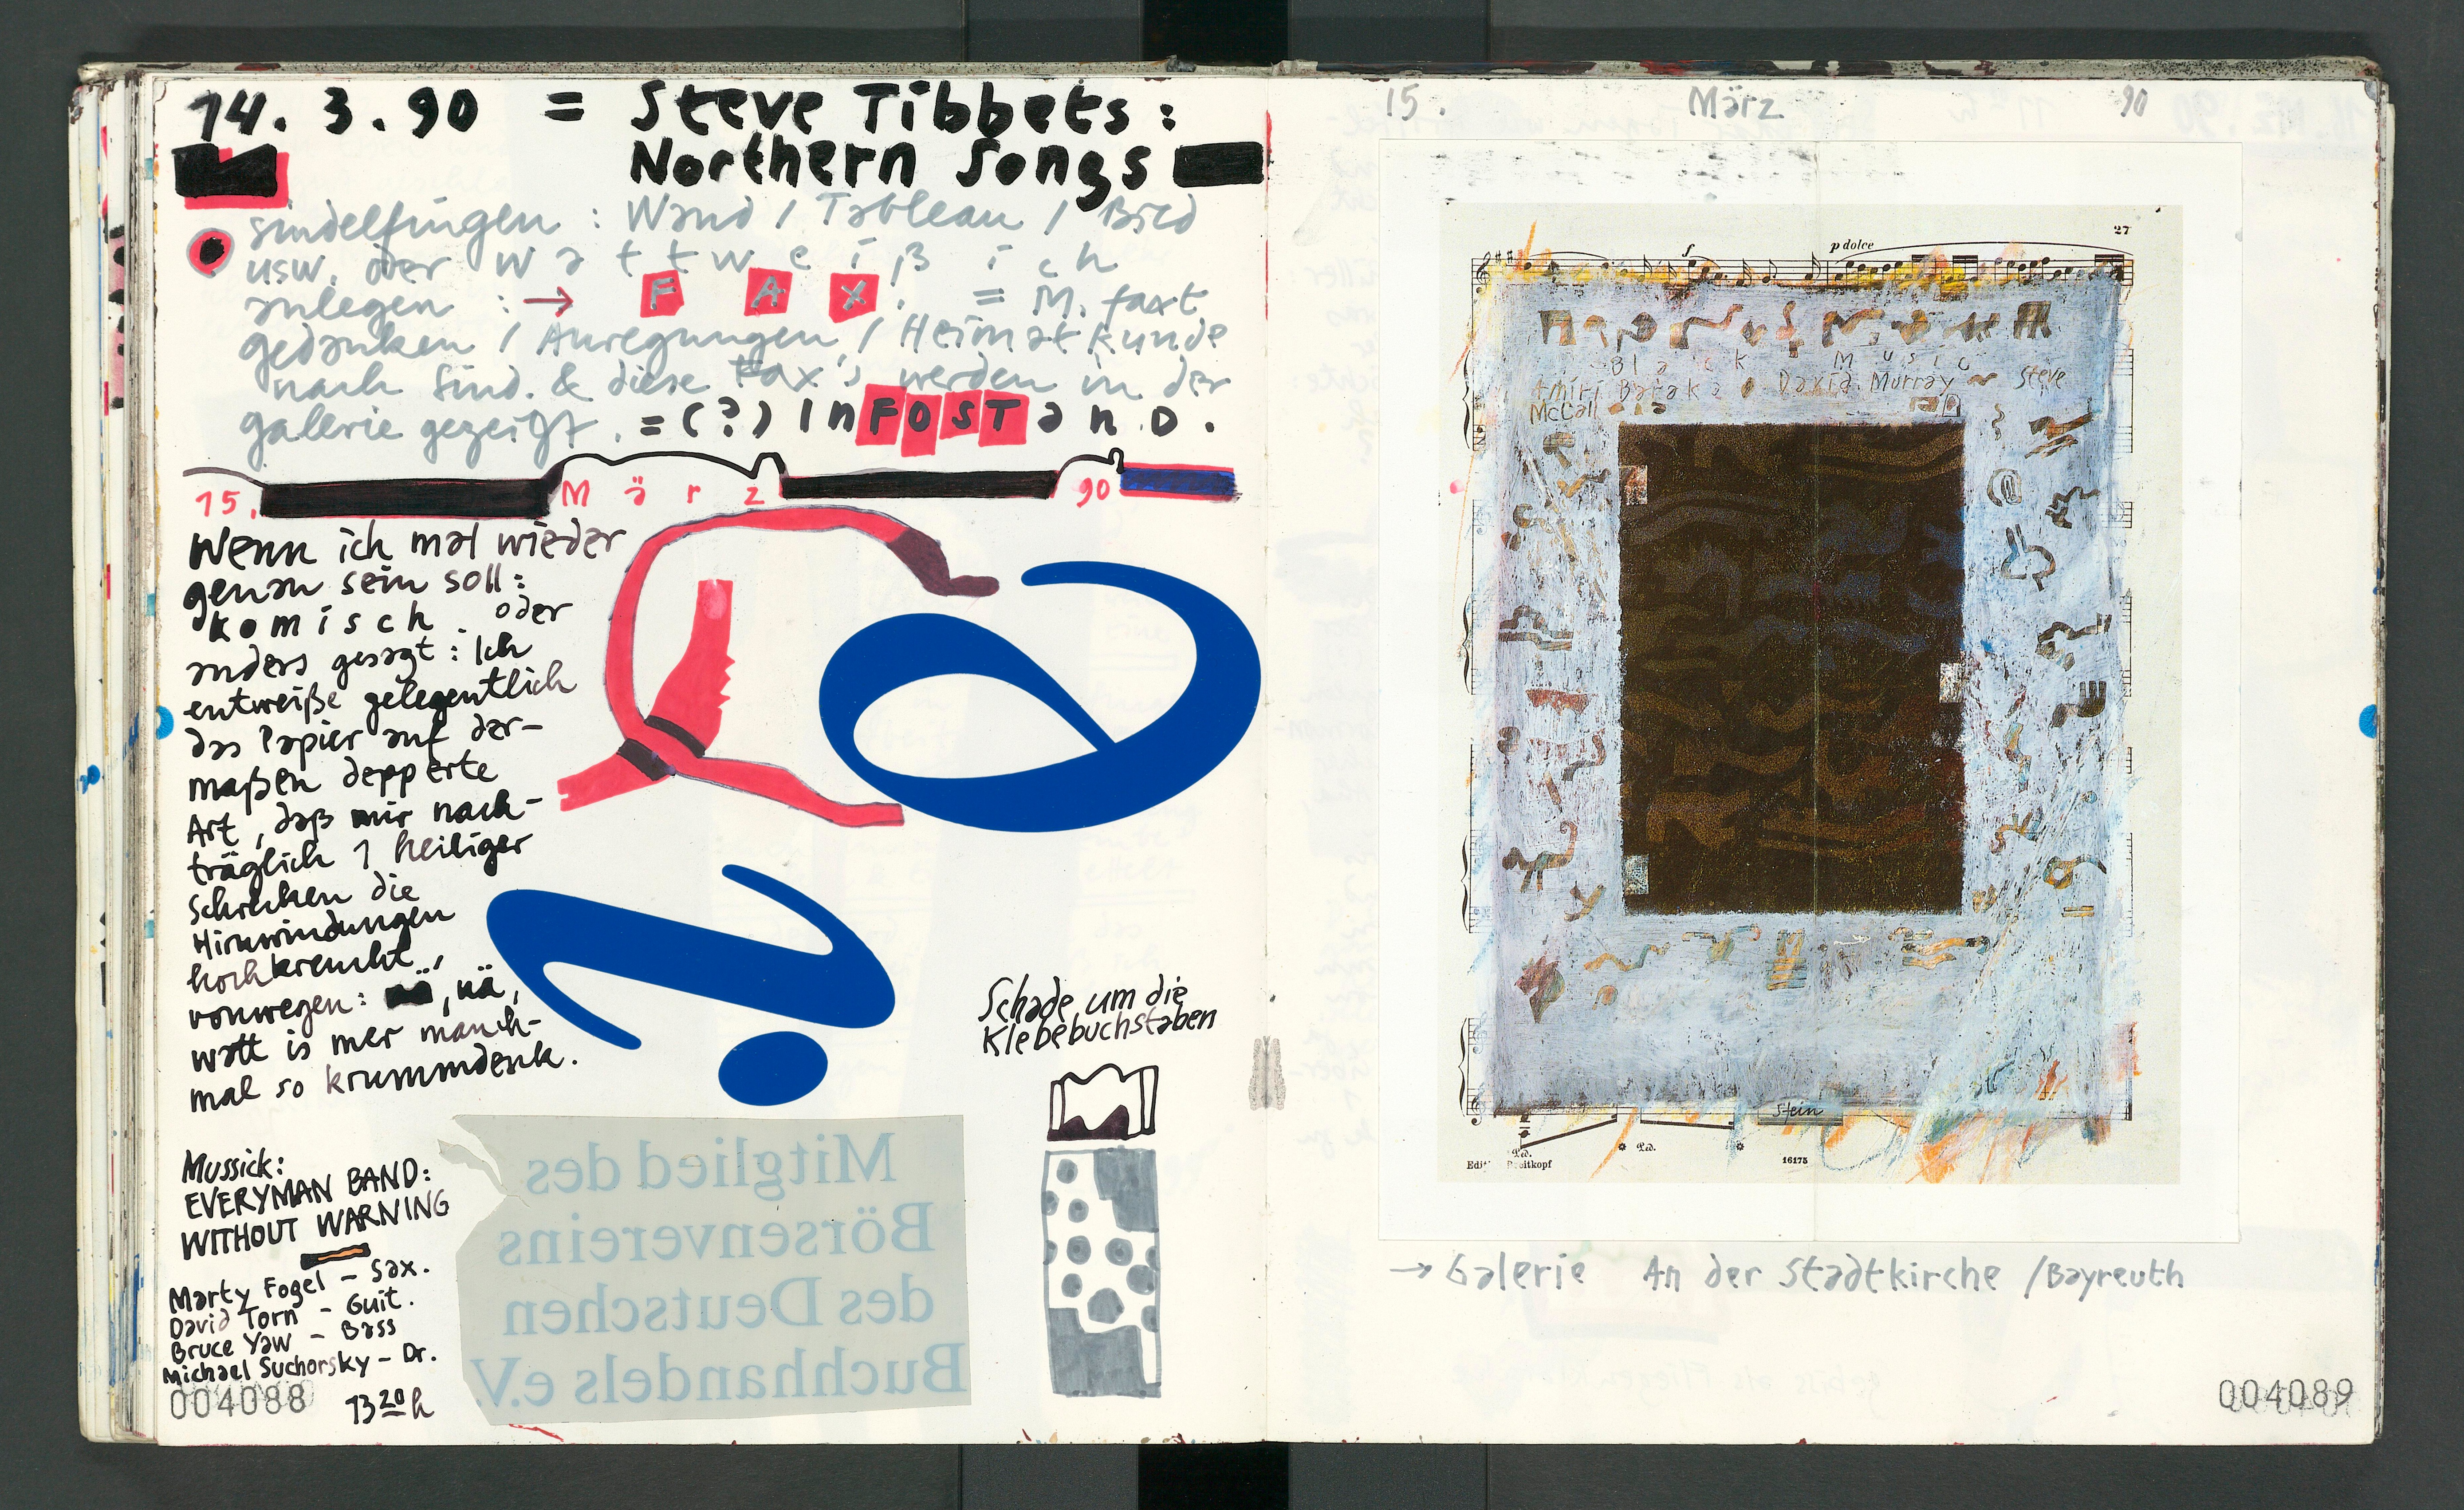 14. 3. 90 = Steve Tibbets:
Northern Songs
Sindelfingen: Wand / Tableau / Bild
usw. oder w a t t w e i ß i c h
anlegen: → F A X. = M. faxt
gedanken / Anregungen / Heimatkunde
nach Sind. & diese Fax's werden in der
galerie gezeigt. = (?) InFOSTanD.
15. März 90
Wenn ich mal wieder
genau sein soll:
komisch oder
anders gesagt: Ich
entweiße gelegentlich
das Papier auf der-
maßen depperte
Art, daß mir nach-
träglich 1 heiliger
Schrecken die
Hirnwindungen
hochkreucht,
vonwegen: , nä,
watt is mer manch-
mal so krummdenk.
Schade um die
Klebebuchstaben
Mussick:
EVERYMAN BAND:
WITHOUT WARNING
Marty Fogel - Sax.
David Torn - Guit.
Bruce Yaw - Bass
Michael Suchorsky - Dr.
004088 13 20 h
Mitglied des
Börsenvereins
des Deutschen
Buchhandels e.V.
15. März 90
27
f p dolce
Black Music
Amiri Baraka David Murray Steve
McCall
Stein
Ped. Ped.
Breitkopf 16175
→ Galerie An der Stadtkirche / Bayreuth
004089